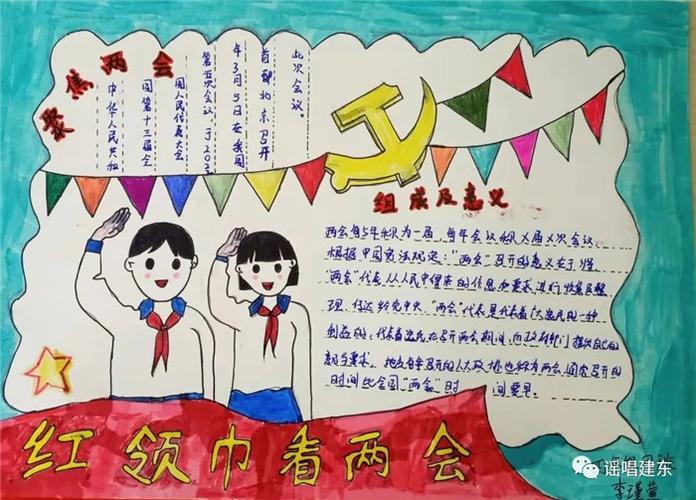 聚焦两会
中华人民共和
国第十三届全
国人民代表大会
第五次会议于202
年3月5日在我国
首都北京召开
此次会议。
组成及意义
两会每5年称为一届,每年会议称X届X次会议。
根据中国宪法规定:"两会"召开的意义在于将
"两会"代表从人民中得来的信息和要求进行收集及整
理,传达给党中央,"两会"代表是代表着广大选民的一种
利益的,代表着选民在召开两会期间,向政府部门提出自己的
意见与要求。地方每年召开的人大政协也称为两会,通常召开的
时间比全国"两会"时 间要早。
红领巾看两会
李瑾萱
谣唱建东